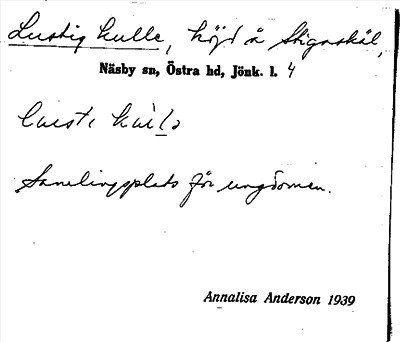 Lustig kulle, höjd å Stignskäl,
Näsby sn, Östra hd, Jönk. l. 4
Samlingsplats för ungdomen.
Annalisa Anderson 1939